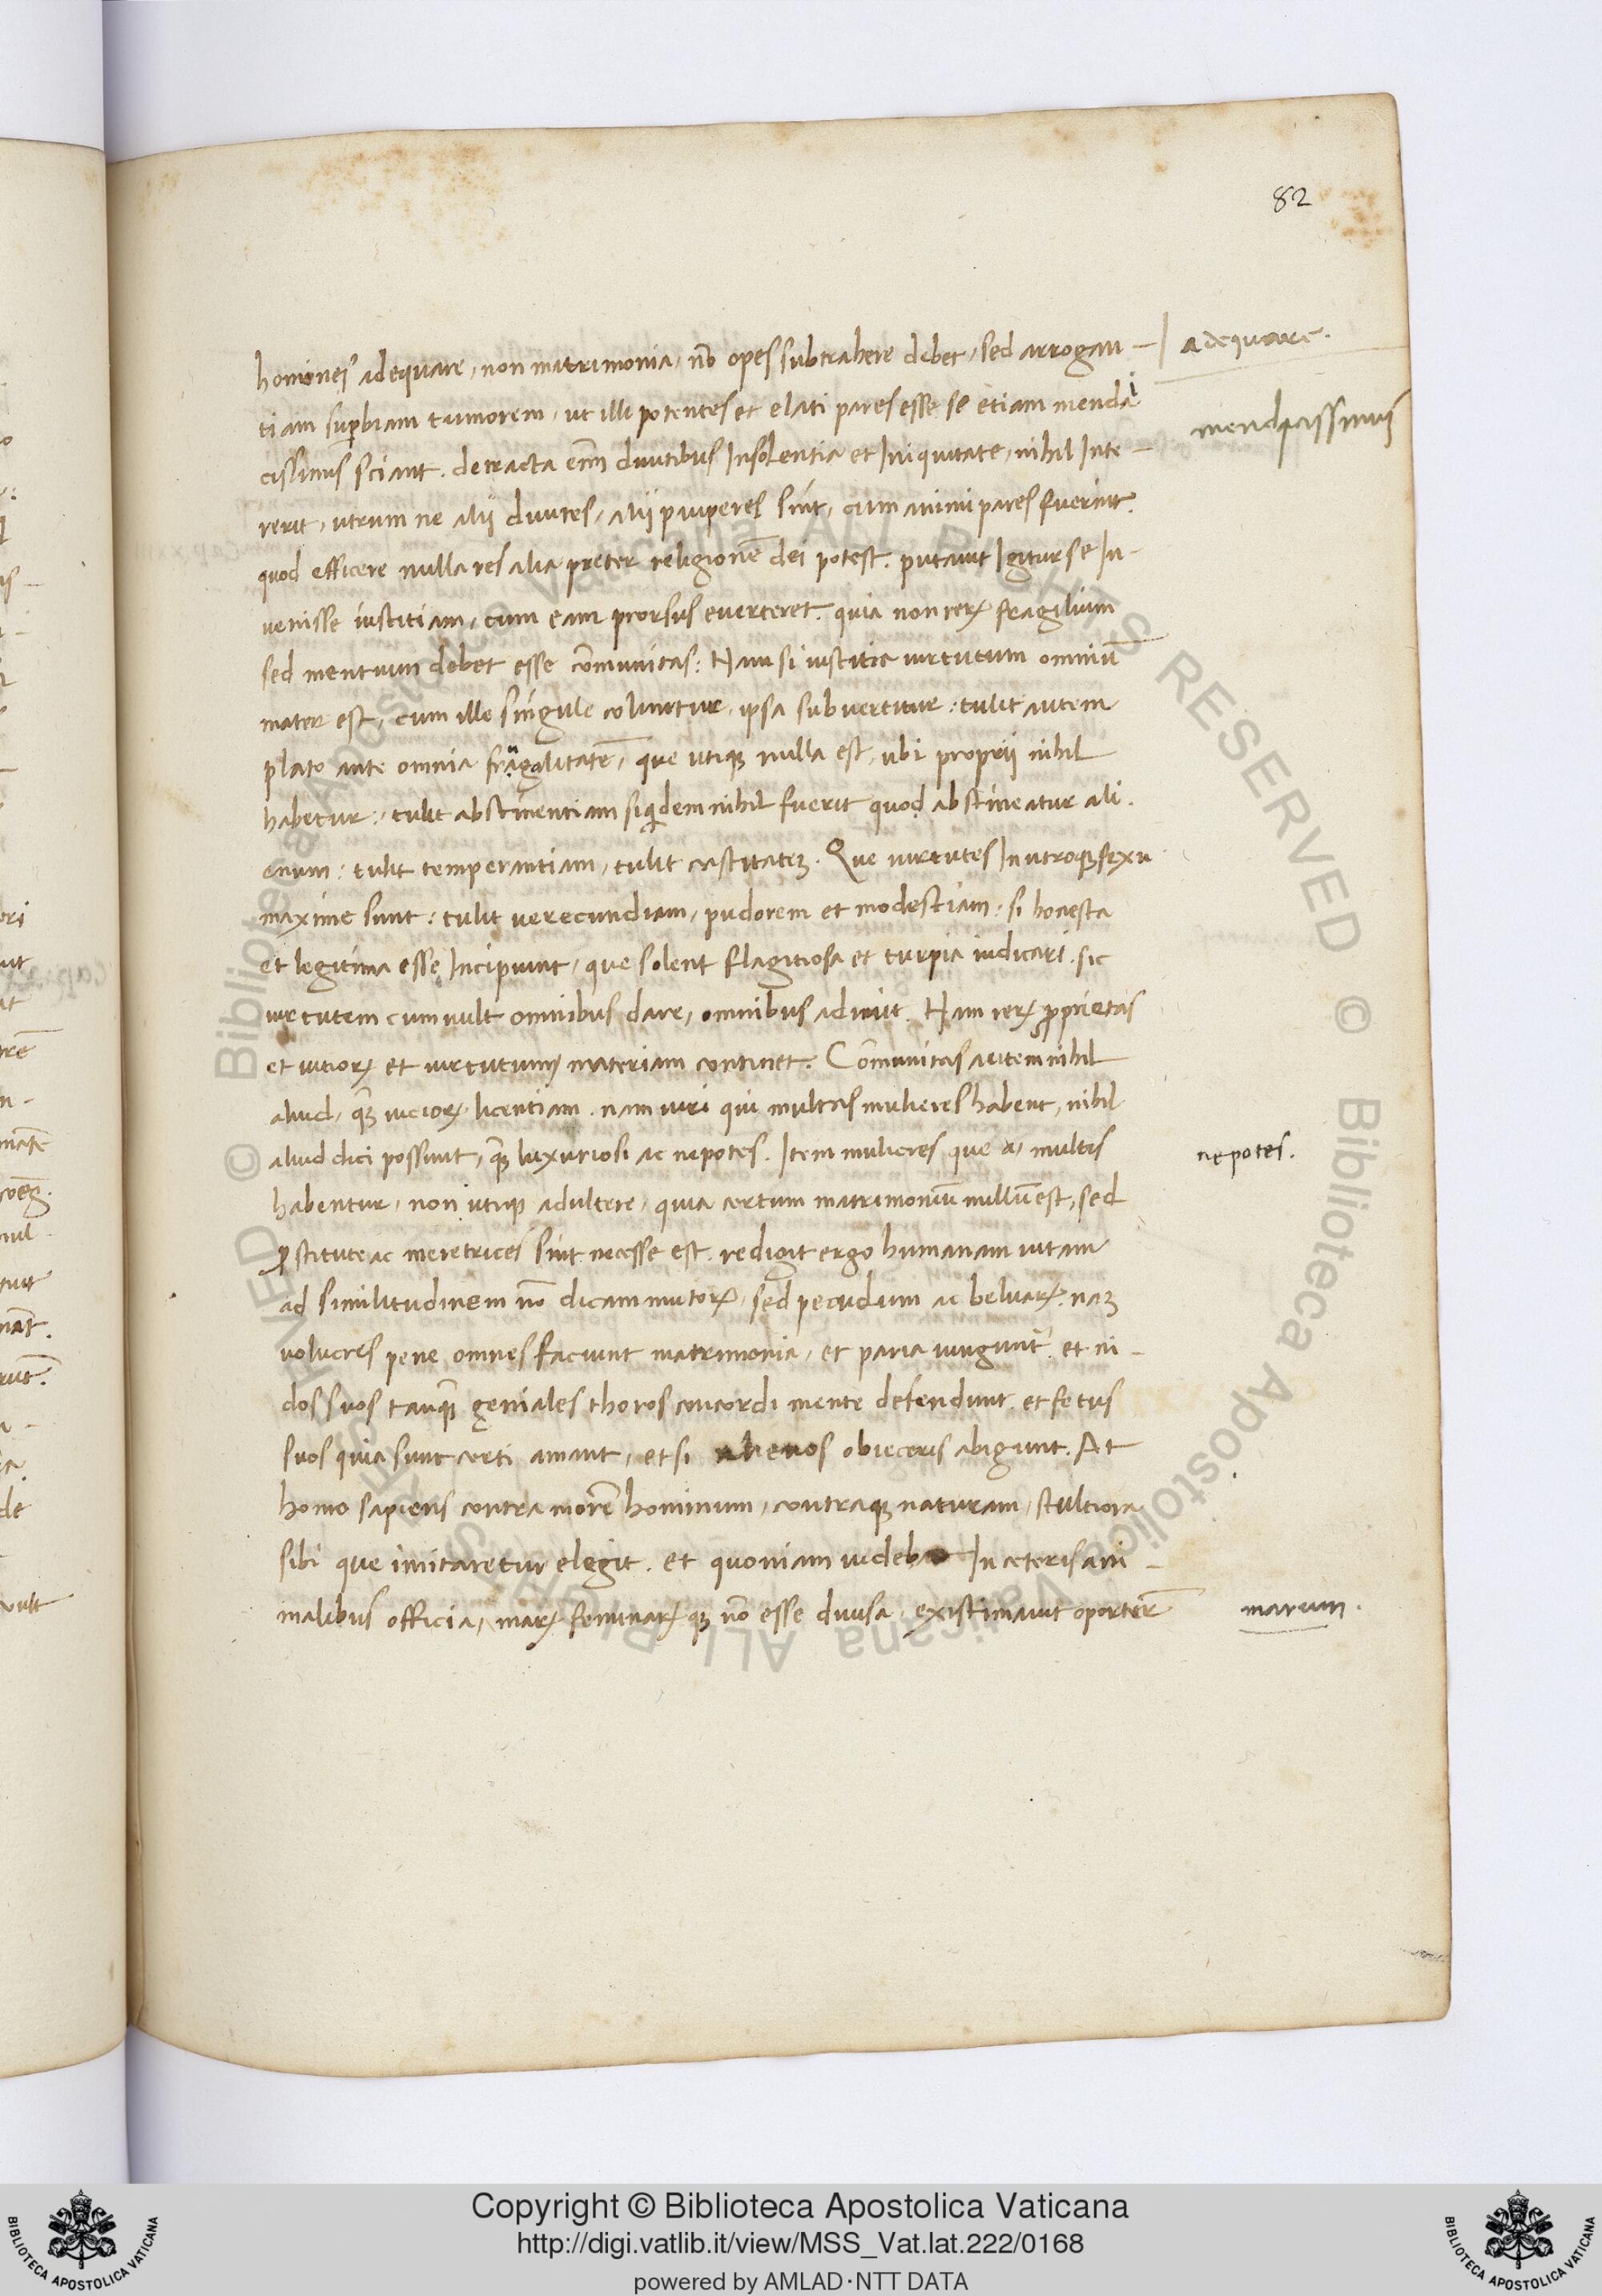 82
homines adequare, non matrimonia, nō opes subtrahere debet, sed arrogan— adequare.
tiam supbiam tumorem, ut illi potentes et elati pares esse se etiam menda
cissimis sciant. detracta em̄ divitibus Insolentia et Iniquitate, nihil Inte—
rerit, utrum ne alij divites, alij pauperes sint, cum animi pares fuerint.
quod efficere nulla res alia preter religionē dei potest. putavit Igitur se In-
venisse iustitiam, cum eam prorsus everteret. quia non reꝝ fragilium
sed mentium debet esse cōmunitas: Nam si iustitia virtutum omniū
mater est, cum ille singule tolluntur, ipsa subvertitur: tulit autem
plato ante omnia frugalitatē, que utiqꝫ nulla est, ubi proprii nihil
habetur: tulit abstinentiam siqdem nihil fuerit quod abstineatur ali.
enum: tulit temperantiam, tulit castitateꝫ. Que virtutes In utroqꝫ sexu
maxime sunt: tulit verecundiam, pudorem et modestiam, si honesta
et legitima esse Incipiunt, que solent flagitiosa et turpia iudicari. sic
virtutem cum vult omnibus dare, omnibus adimit. Nam reꝝ ꝓprietas
et vitioꝝ et virtutum materiam continet. Cōmunitas autem nihil
aliud, qꝫ vicioꝝ licentiam. nam viri qui multas mulieres habent, nihil
aliud dici possunt, qꝫ luxuriosi ac nepotes. Item mulieres que a, multis nepotes.
habentur, non utiqꝫ adultere, quia certum matrimoniū nullū est, sed
ꝓstitute ac meretrices sint necesse est. redigit ergo humanam vitam
ad similitudinem nō dicam mutoꝝ, sed pecudum ac beluaꝝ. naꝫ
volucres pene omnes faciunt matrimonia, et paria iungunt̄. et ni-
dos suos tanqꝫ geniales thoros concordi mente defendunt. et fetus
suos quia sunt certi amant, et si alienos obieceris abigunt. At
homo sapiens contra morē hominum, contraqꝫ naturam, stultiora
sibi que imitaretur elegit. et quoniam In ceteris ani—
malibus officia, maꝝ feminaꝝ qꝫ nō esse divisa, existimavit oporterē marium.
Copyright © Biblioteca Apostolica Vaticana
http://digi.vatlib.it/view/MSS_Vat.lat.222/0168
powered by AMLAD·NTT DATA